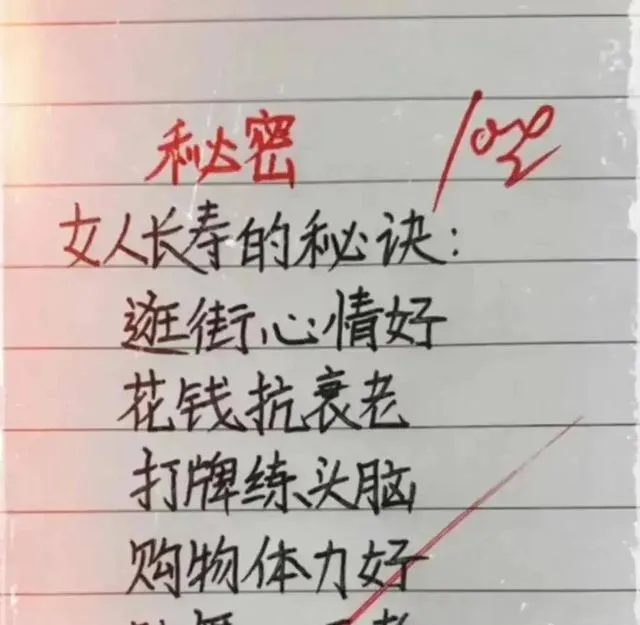 秘密 100
女人长寿的秘诀:
逛街心情好
花钱抗衰老
打牌练头脑
购物体力好